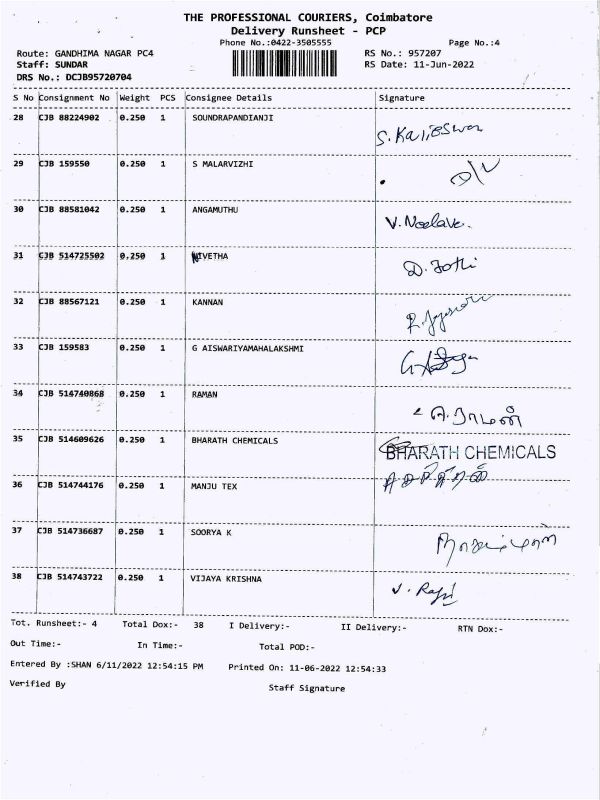 THE PROFESSIONAL COURIERS, Coimbatore
Delivery Runsheet - PCP
Phone No.:0422-3505555 Page No.:4
Route: GANDHIMA NAGAR PC4 RS No.: 957207
Staff: SUNDAR RS Date: 11-Jun-2022
DRS No.: DCJB95720704
S No Consignment No Weight PCS Consignee Details Signature
28 CJB 88224902 0.250 1 SOUNDRAPANDIANJI
29 CJB 159550 0.250 1 S MALARVIZHI
30 CJB 88581042 0.250 1 ANGAMUTHU V. Neelave.
31 CJB 514725502 0.250 1 NIVETHA D. Jothi
32 CJB 88567121 0.250 1 KANNAN
33 CJB 159583 0.250 1 G AISWARIYAMAHALAKSHMI
34 CJB 514740868 0.250 1 RAMAN
35 CJB 514609626 0.250 1 BHARATH CHEMICALS BHARATH CHEMICALS
36 CJB 514744176 0.250 1 MANJU TEX
37 CJB 514736687 0.250 1 SOORYA K
38 CJB 514743722 0.250 1 VIJAYA KRISHNA
Tot. Runsheet:- 4 Total Dox:- 38 I Delivery:- II Delivery:- RTN Dox:-
Out Time:- In Time:- Total POD:-
Entered By :SHAN 6/11/2022 12:54:15 PM Printed On: 11-06-2022 12:54:33
Verified By Staff Signature